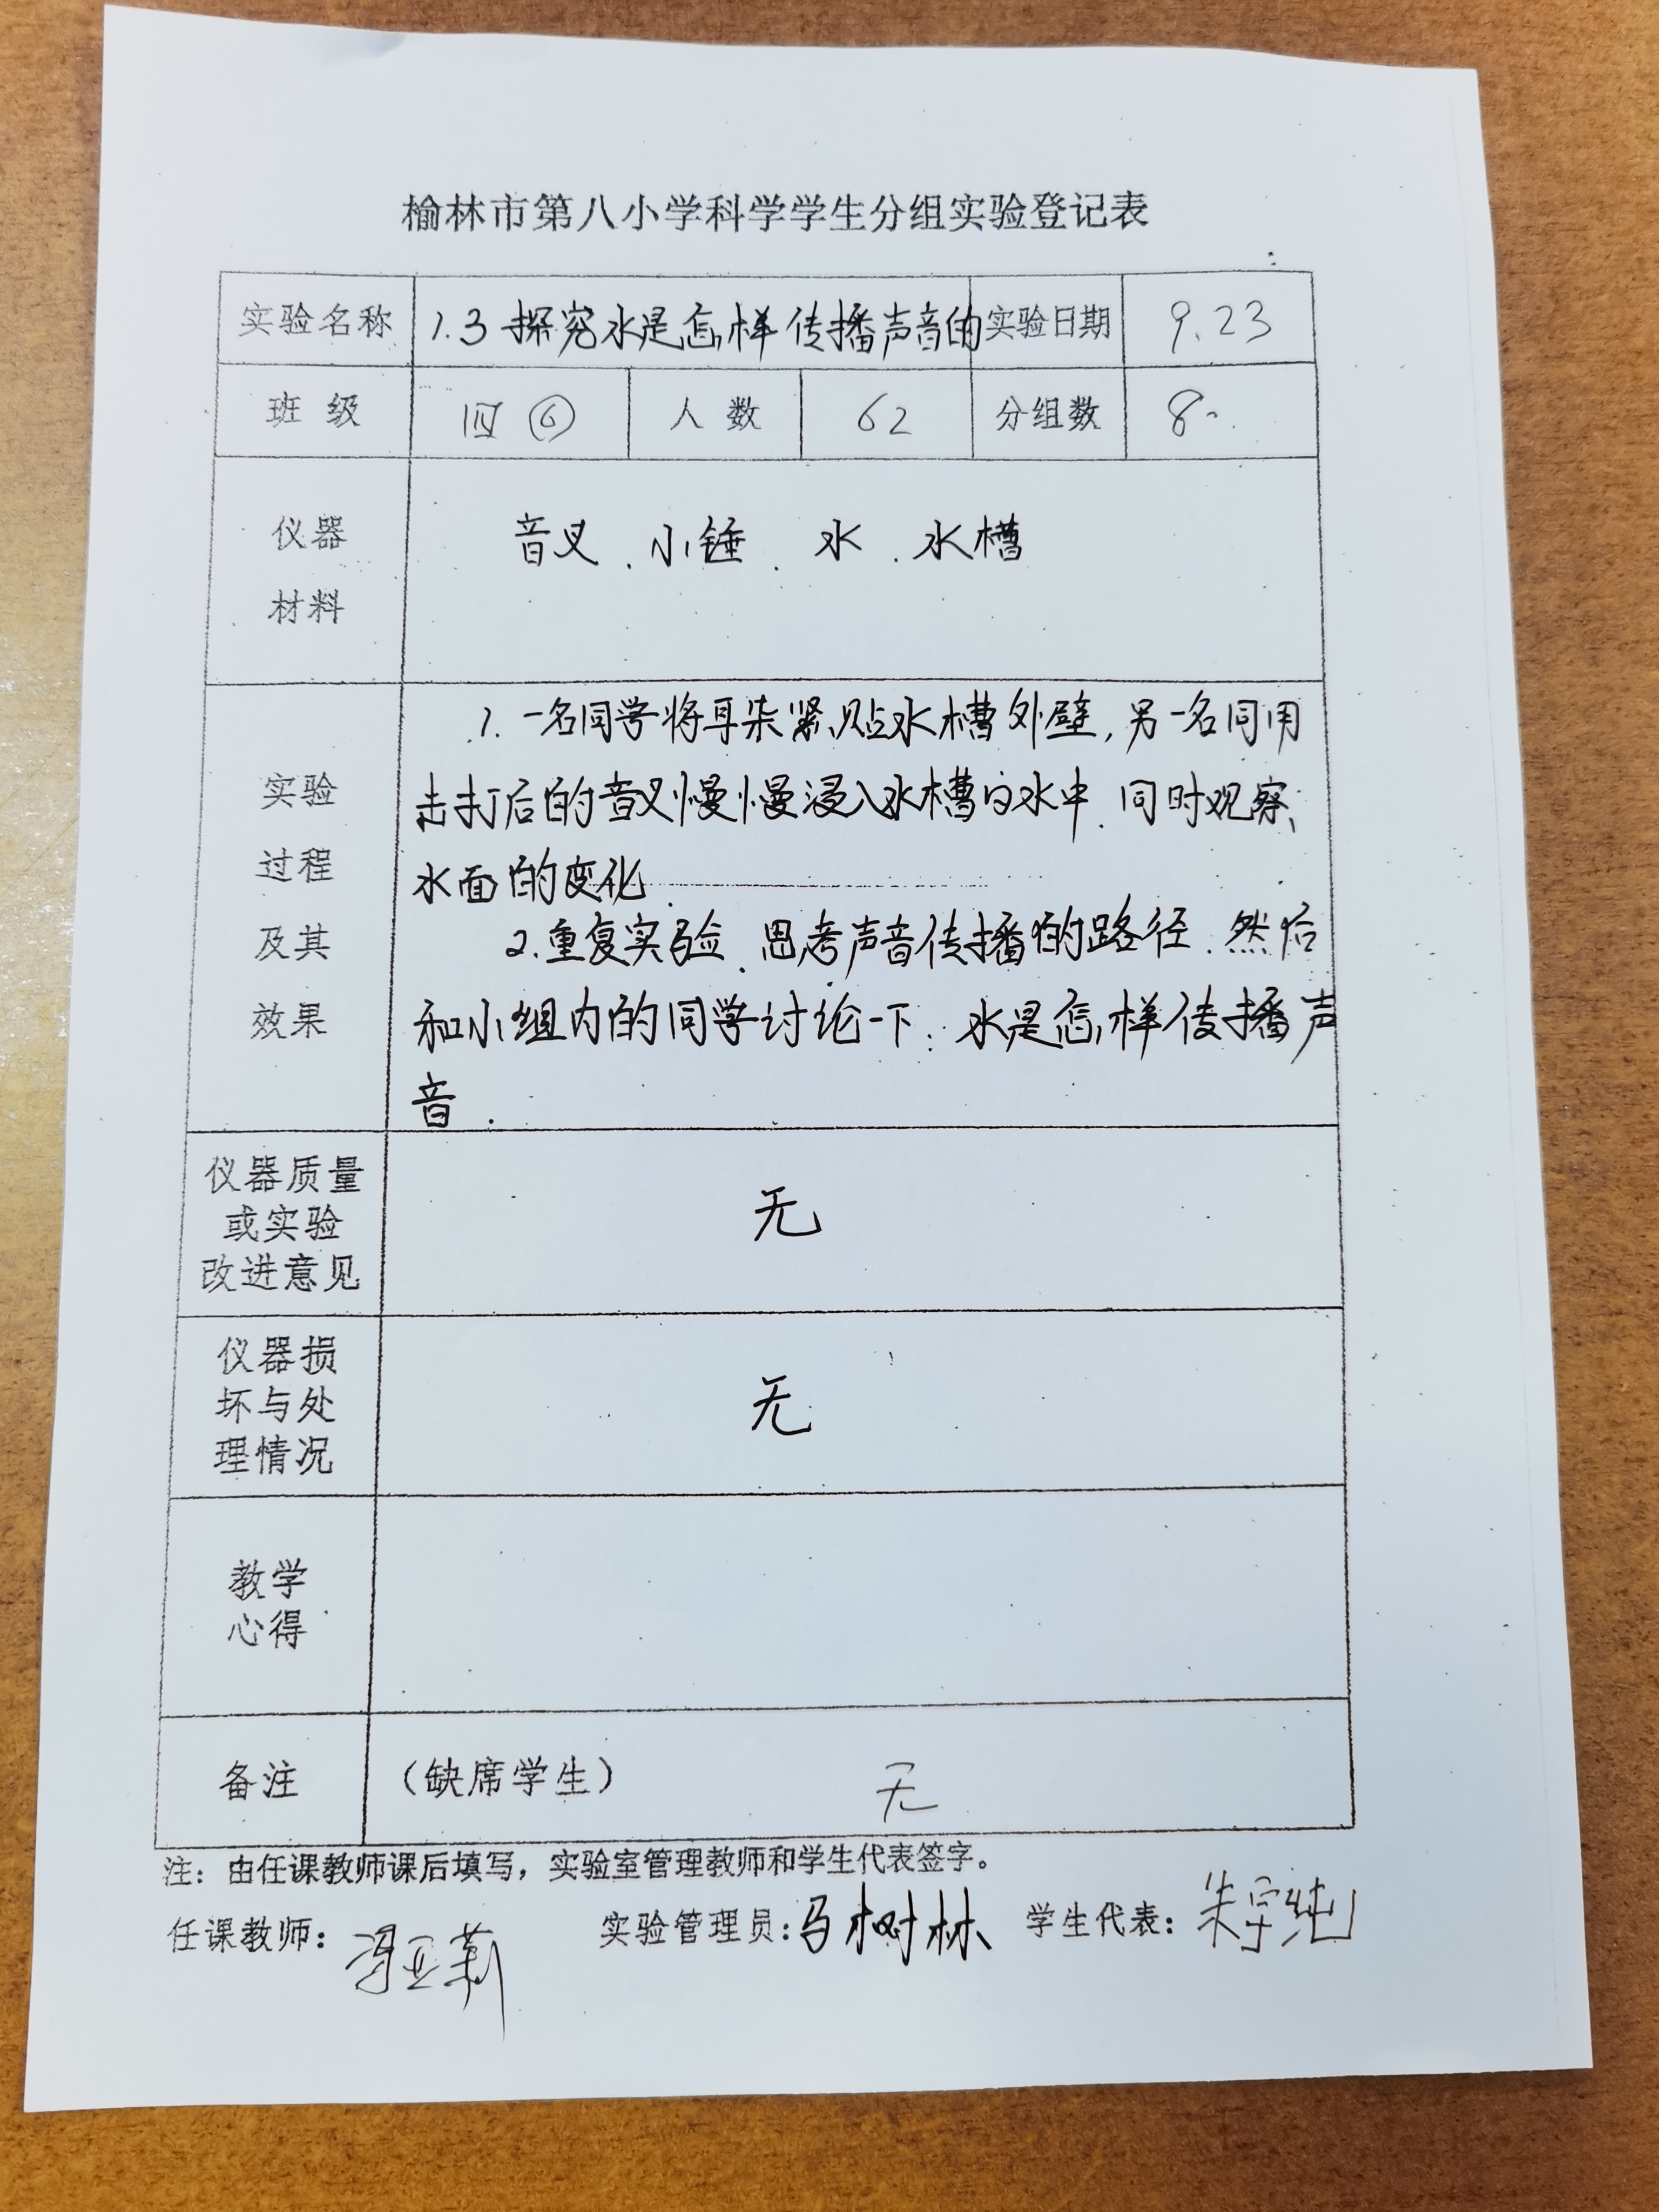 榆林市第八小学科学学生分组实验登记表
实验名称 1.3 探究水是怎样传播声音的 实验日期 9.23
班 级 四 ⑥ 人 数 62 分组数 8
仪器 音叉、小锤、水、水槽
材料
1. 一名同学将耳朵紧贴水槽外壁,另一名同用
实验 击打后的音叉慢慢浸入水槽的水中、同时观察
过程 水面的变化.
及其 2.重复实验、思考声音传播的路径.然后
效果 和小组内的同学讨论一下:水是怎样传播声
音.
仪器质量
或实验 无
改进意见
仪器损
坏与处 无
理情况
教学
心得
备注 (缺席学生) 无
注:由任课教师课后填写,实验室管理教师和学生代表签字。
任课教师: 实验管理员:马树林 学生代表:朱宇纯